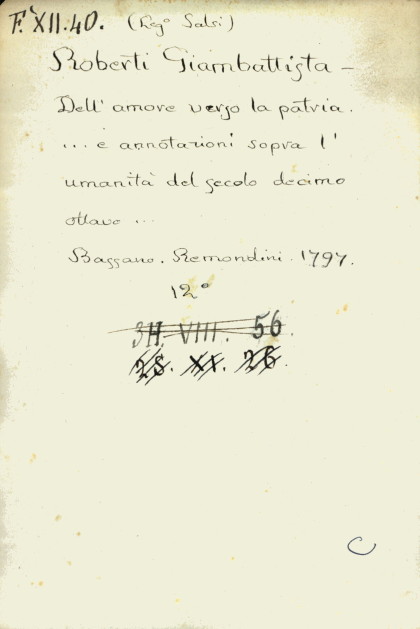 F. XII. 40. (Leg° Salsi)
Roberti Giambattista -
Dell' amore verso la patria.
... e annotazioni sopra l'
umanità del secolo decimo
ottavo ...
Bassano. Remondini. 1797.
12°
3H. VIII. 56.
28. XI. 26.
C